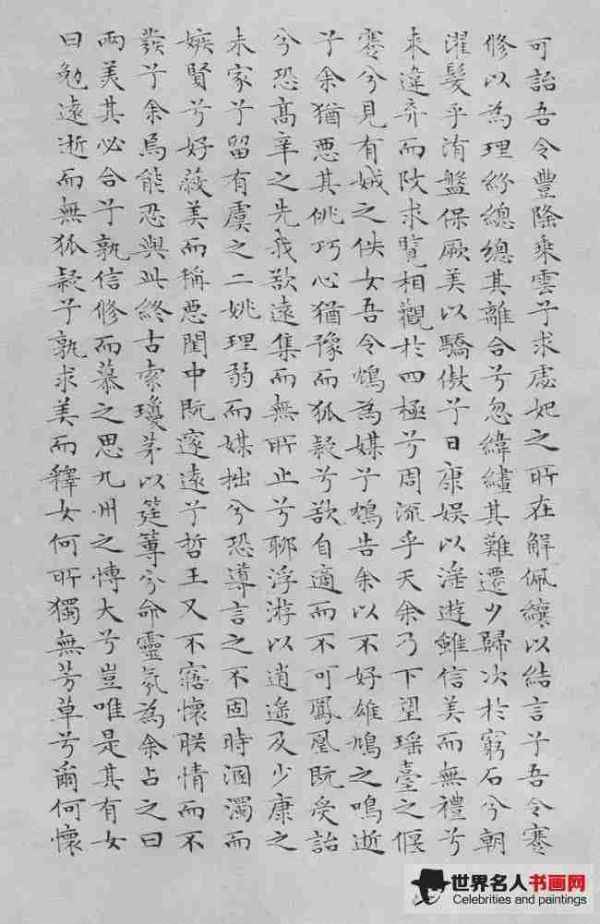 可詒吾令豐隆乘雲兮求虙妃之所在解佩纕以結言兮吾令蹇
修以為理紛總總其離合兮忽緯繣其難遷夕歸次於窮石兮朝
濯髮乎洧盤保厥美以驕傲兮日康娛以淫遊雖信美而無禮兮
來違弃而改求覽相觀於四極兮周流乎天余乃下望瑤臺之偃
蹇兮見有娀之佚女吾令鴆為媒兮鴆告余以不好雄鳩之鳴逝
兮余猶惡其佻巧心猶豫而狐疑兮欲自適而不可鳳凰既受詒
兮恐高辛之先我欲遠集而無所止兮聊浮游以逍遙及少康之
未家兮留有虞之二姚理弱而媒拙兮恐導言之不固時溷濁而
嫉賢兮好蔽美而稱惡閨中既邃遠兮哲王又不寤懷朕情而不
發兮余焉能忍與此終古索瓊茅以筳篿兮命靈氛為余占之曰
兩美其必合兮孰信修而慕之思九州之博大兮豈唯是其有女
曰勉遠逝而無狐疑兮孰求美而釋女何所獨無芳草兮爾何懷
世界名人书画网
Celebrities and paintings